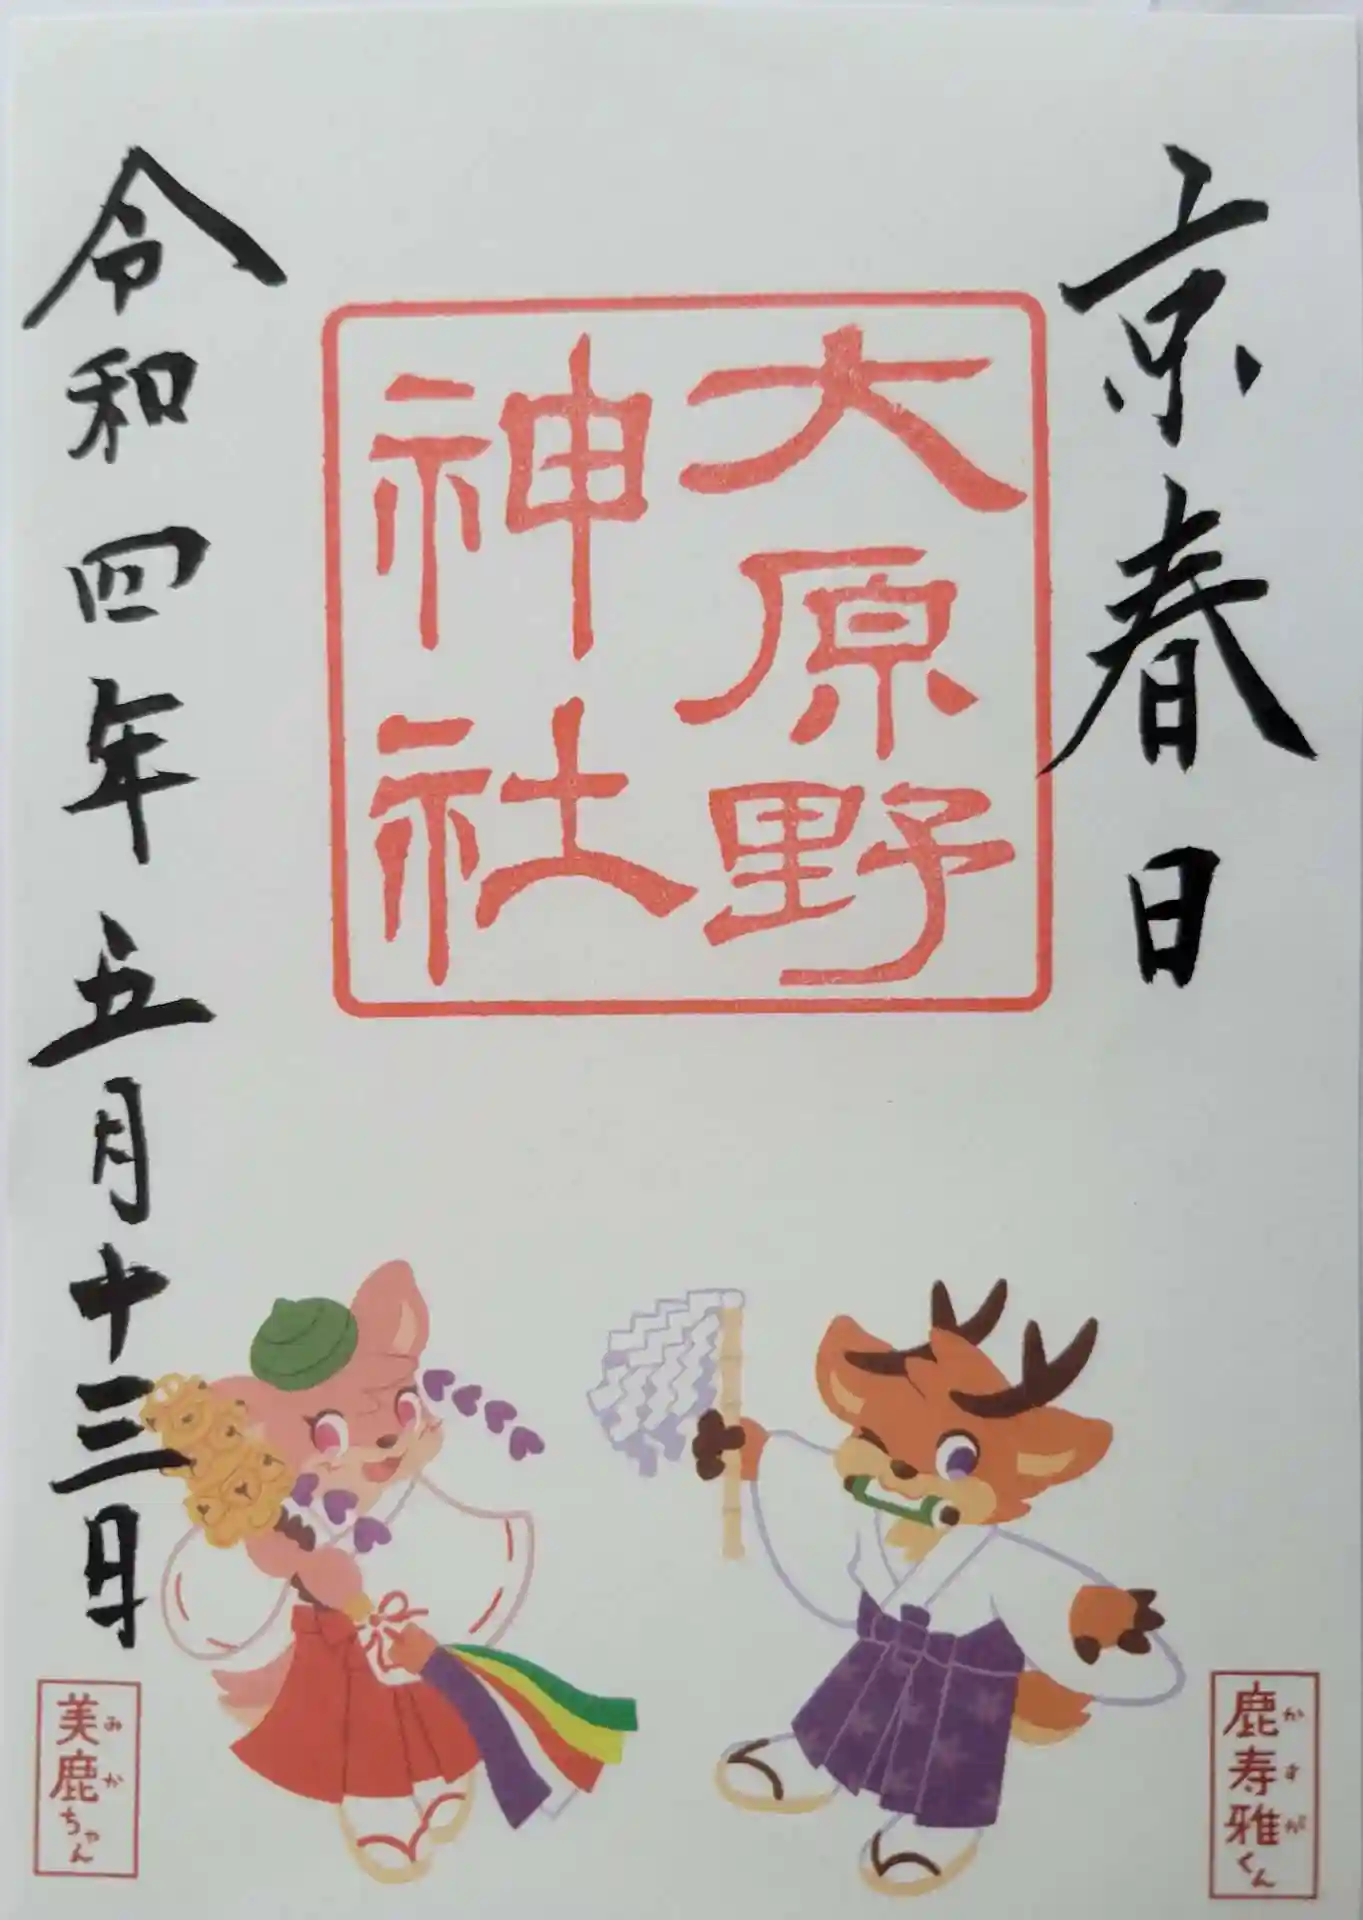 京春日
大原野
神社
令和四年五月十三日
鹿寿雅くん
かすが
美鹿ちゃん
みか